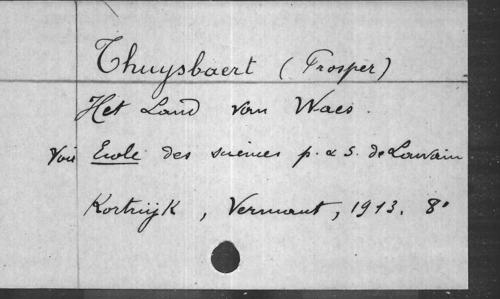 Thuysbaert (Prosper)
Het Land van Waes.
Voir Ecole des sciences p. & s. de Louvain
Kortrijk, Vermaut, 1913. 8°